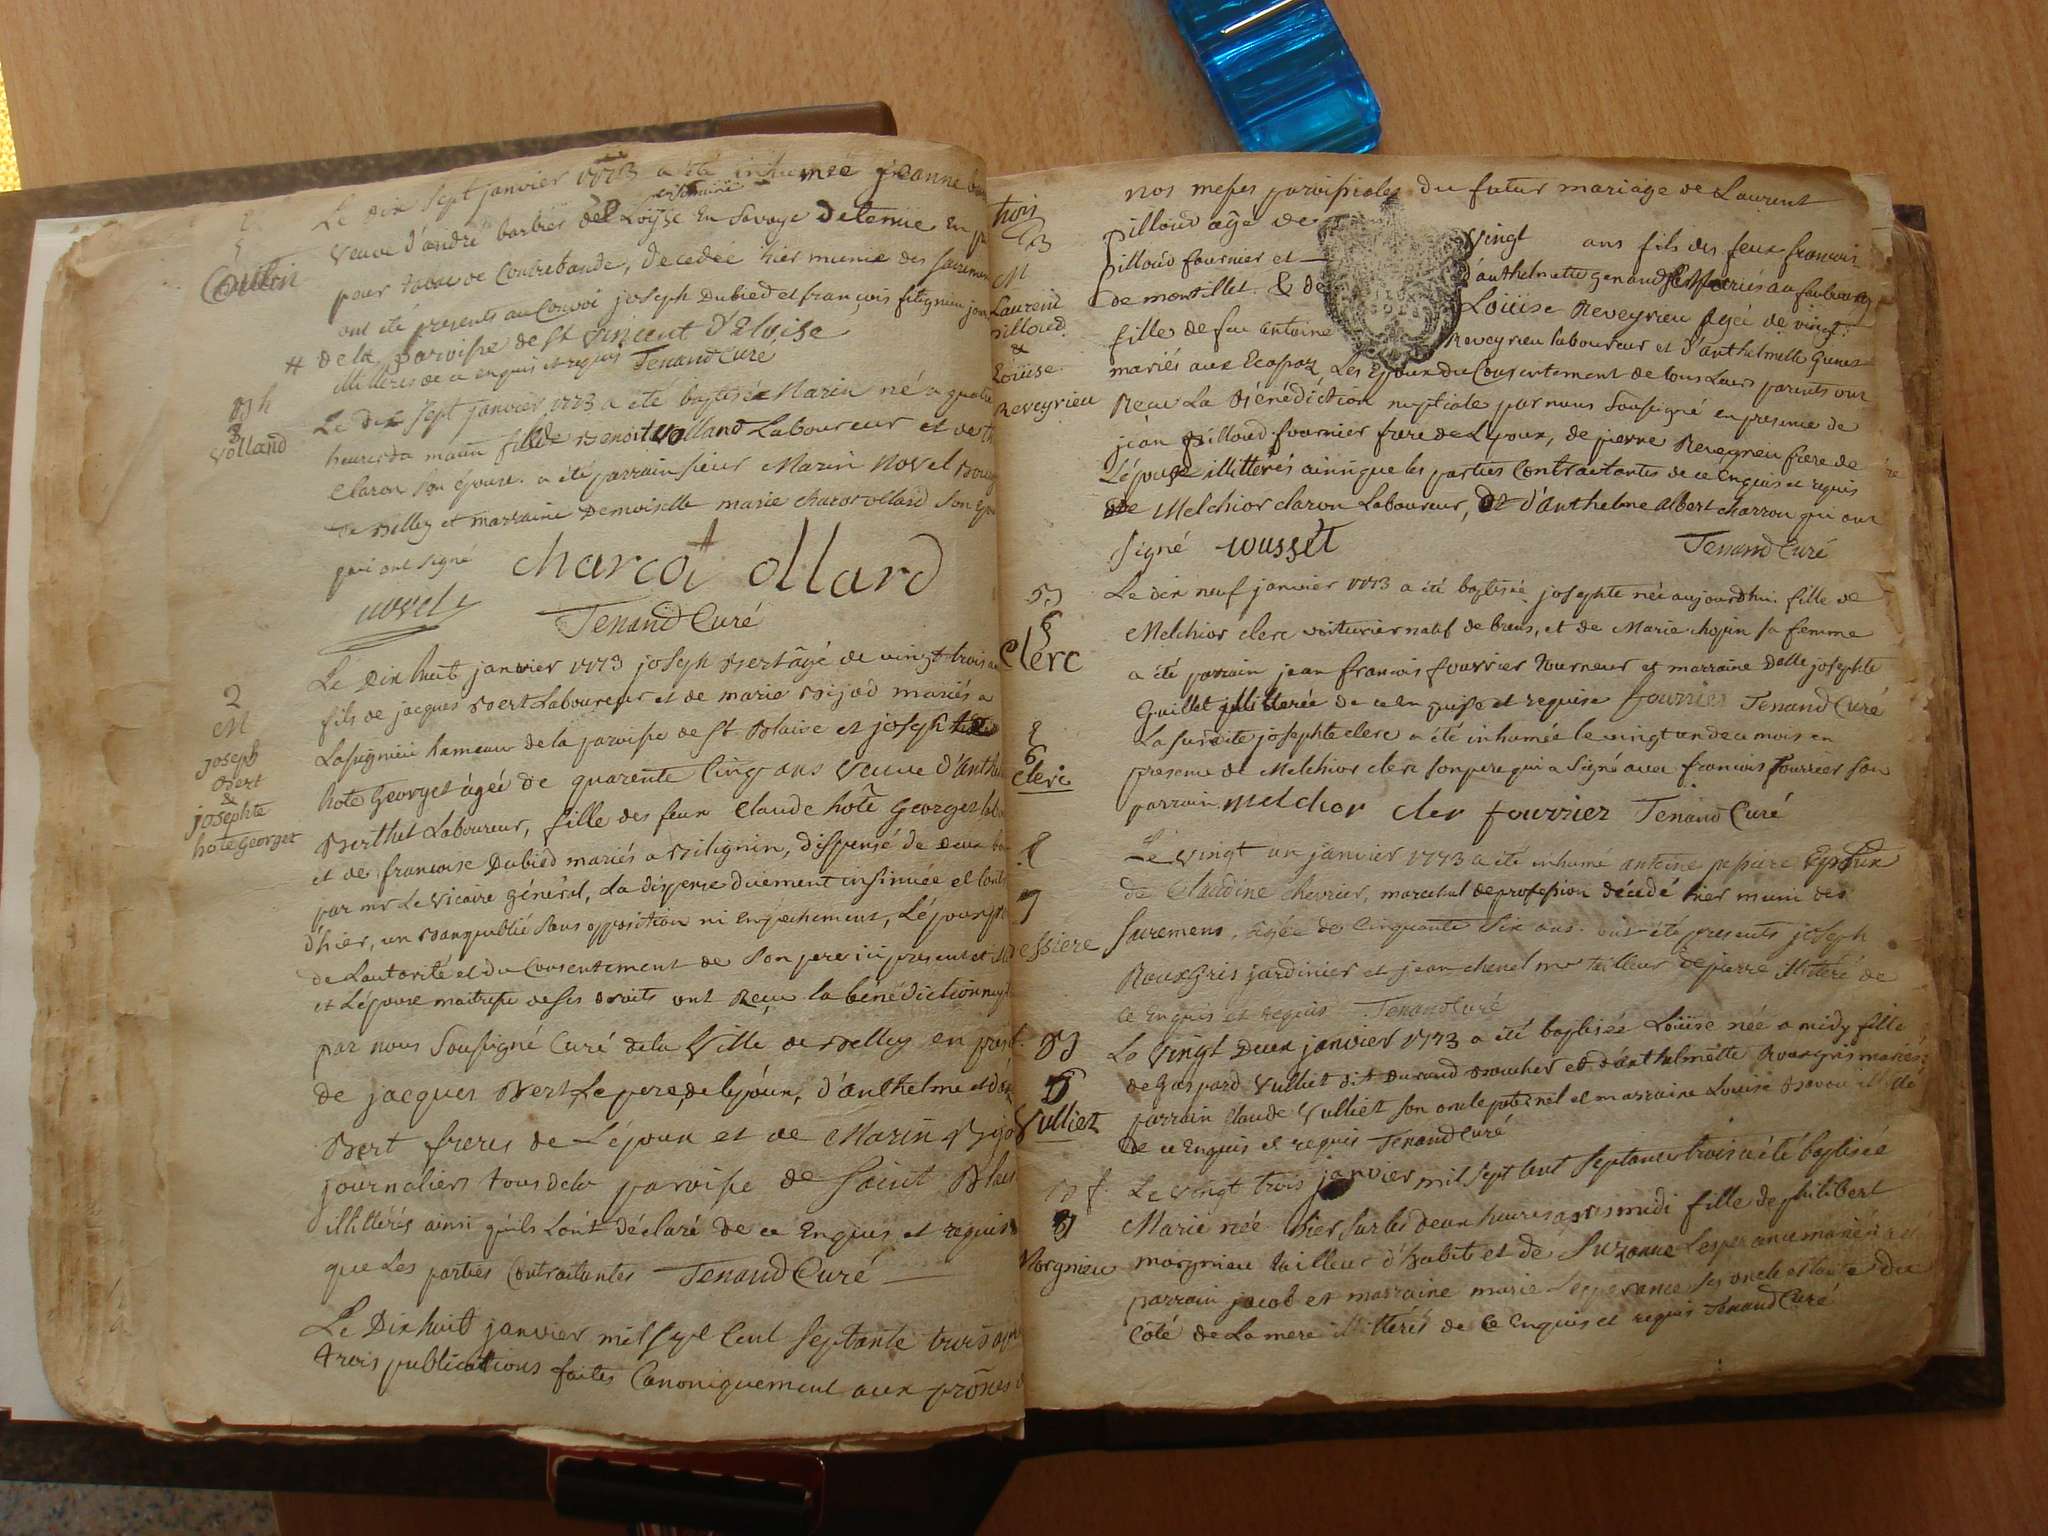 Coutin
Le Dix Sept janvier 1773 a été inhumée jeanne
veuve d'andré barbier de Loïse En Savoye Detenue En
pour tabac de Contrebande, Decedée hier munie des Sacremens
ont été presents au Convoi joseph Dubied et françois
# dela paroisse de St Vincent d'Eloise
illitterés de ce enquis et requis Tenand Curé
Volland
Le Dix Sept janvier 1773 a été baptisé Marin né a quatre
heures du matin fils de Benoit Volland Laboureur et de
Claron Son épouse. a été parrain sieur Marin Novel
de Belley et marraine Demoiselle marie charcot ollard Son
qui ont signé charcot ollard
novel Tenand Curé
2
M
joseph
Bert
&
josephte
hote Georget
Le Dix huit janvier 1773 joseph Bert âgé de vingt trois
fils de jacques Bert Laboureur et de marie Bijod mariés a
Lassignieu hameau de la paroisse de St Blaise et joseph
hote Georget âgée de quarente Cinq ans Veuve d'anth
Berthet Laboureur, fille des feux Claude hôte Georget
et de francoise Dubied mariés a Bilignin, dispensé de Deux
par mr Le Vicaire général, La dispense duement insinuée et
d'hier, un Ban publié Sans opposition ni Empechement, L'époux
de Lautorité et du Consentement de Son pere ici present et
et L'épouse maitresse de Ses Droits ont Reçu la bénédiction
par nous Soussigné Curé dela Ville de Belley en
de jacques Bert Le pere de lépoux, d'anthelme et
Bert freres de L'époux et de Marin Bijo
journaliers tous dela paroisse de Saint Blais
illitterés ainsi qu'ils L'ont déclaré de ce Enquis et requis
que Les parties Contractantes Tenand Curé
Le Dix huit janvier mil Sept Cent Septante trois
trois publications faites Canoniquement aux prônes
trois
M
Laurent
pilloud
&
Loüise
Reveyrieu
nos messes paroissiales du futur mariage de Laurent
pilloud âgé de vingt ans fils des feux francois
pilloud fournier et d'anthelmette Genand mariés au faubourg
de montillet & de Loüise Reveyrieu agée de vingt
fille de feu antoine Reveyrieu laboureur et d'anthelmette
mariés aux Ecopaz, Les Epoux du Consentement de tous Leurs parents ont
Recu La Bénédiction nuptiale par nous Soussigné en presence de
jean pilloud fournier frere de L'epoux, de pierre Reveyrieu frere de
L'épouse illitterés ainsi que les parties Contractantes de ce Enquis et requis
de Melchior claron Laboureur, & d'anthelme albert charron qui ont
Signé Tenand Curé
Clerc
Le dix neuf janvier 1773 a été baptisée josephte née aujourdhui fille de
Melchior clerc voiturier natif de brens, et de Marie chopin sa femme
a été parrain jean francois fourrier Tourneur et marraine Delle josephte
Guillet illitterée de ce enquise et requise fourrier Tenand Curé
6
Clerc
La susdite josephte clerc a été inhumée le vingt un de ce mois en
presence de Melchior clerc son pere qui a Signé avec francois fourrier son
parrain. melchor cler fourrier Tenand Curé
7
essiere
Le vingt un janvier 1773 a été inhumé antoine pessiere Epoux
de Claudine chevrier, marechal de profession décédé hier muni des
Sacremens, Agée de Cinquante Six ans. ont été presents joseph
Rouxgris jardinier et jean chenel mr tailleur de pierre illiteré de
ce enquis et requis Tenand Curé
Vulliez
Le Vingt Deux janvier 1773 a été baptisée Loüise née a midy fille
de Gaspard Vulliez dit Durand Boucher et d'anthelmette Rouxgris mariés
parrain Claude Vulliez son oncle paternel et marraine Louise
de ce Enquis et requis Tenand Curé
Morgnieu
Le vingt trois janvier mil sept cent septante trois a été baptisée
Marie née hier sur les deux heures apres midi fille de philibert
morgnieu tailleur d'habits et de Suzanne Lesperance mariés
parrain jacob et marraine marie Lesperance Ses oncle et tante du
Côté de La mere illitterés de Ce Enquis et requis Tenand Curé